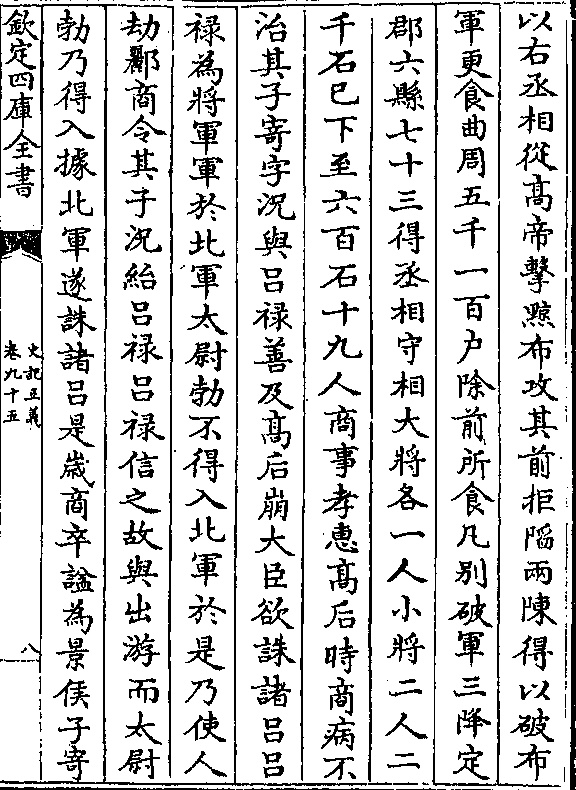 以右丞相從髙帝擊黥布攻其前拒䧟兩陳得以破布
軍更食曲周五千一百户除前所食凡别破軍三降定
郡六縣七十三得丞相守相大將各一人小將二人二
千石已下至六百石十九人商事孝惠髙后時商病不
治其子寄字况與吕禄善及髙后崩大臣欲誅諸吕吕
禄為將軍軍於北軍太尉勃不得入北軍於是乃使人
劫酈商令其子况紿吕禄吕禄信之故與出游而太尉
勃乃得入據北軍遂誅諸吕是嵗商卒諡為景侯子寄
欽定四庫全書
史記正義
卷九十五
八